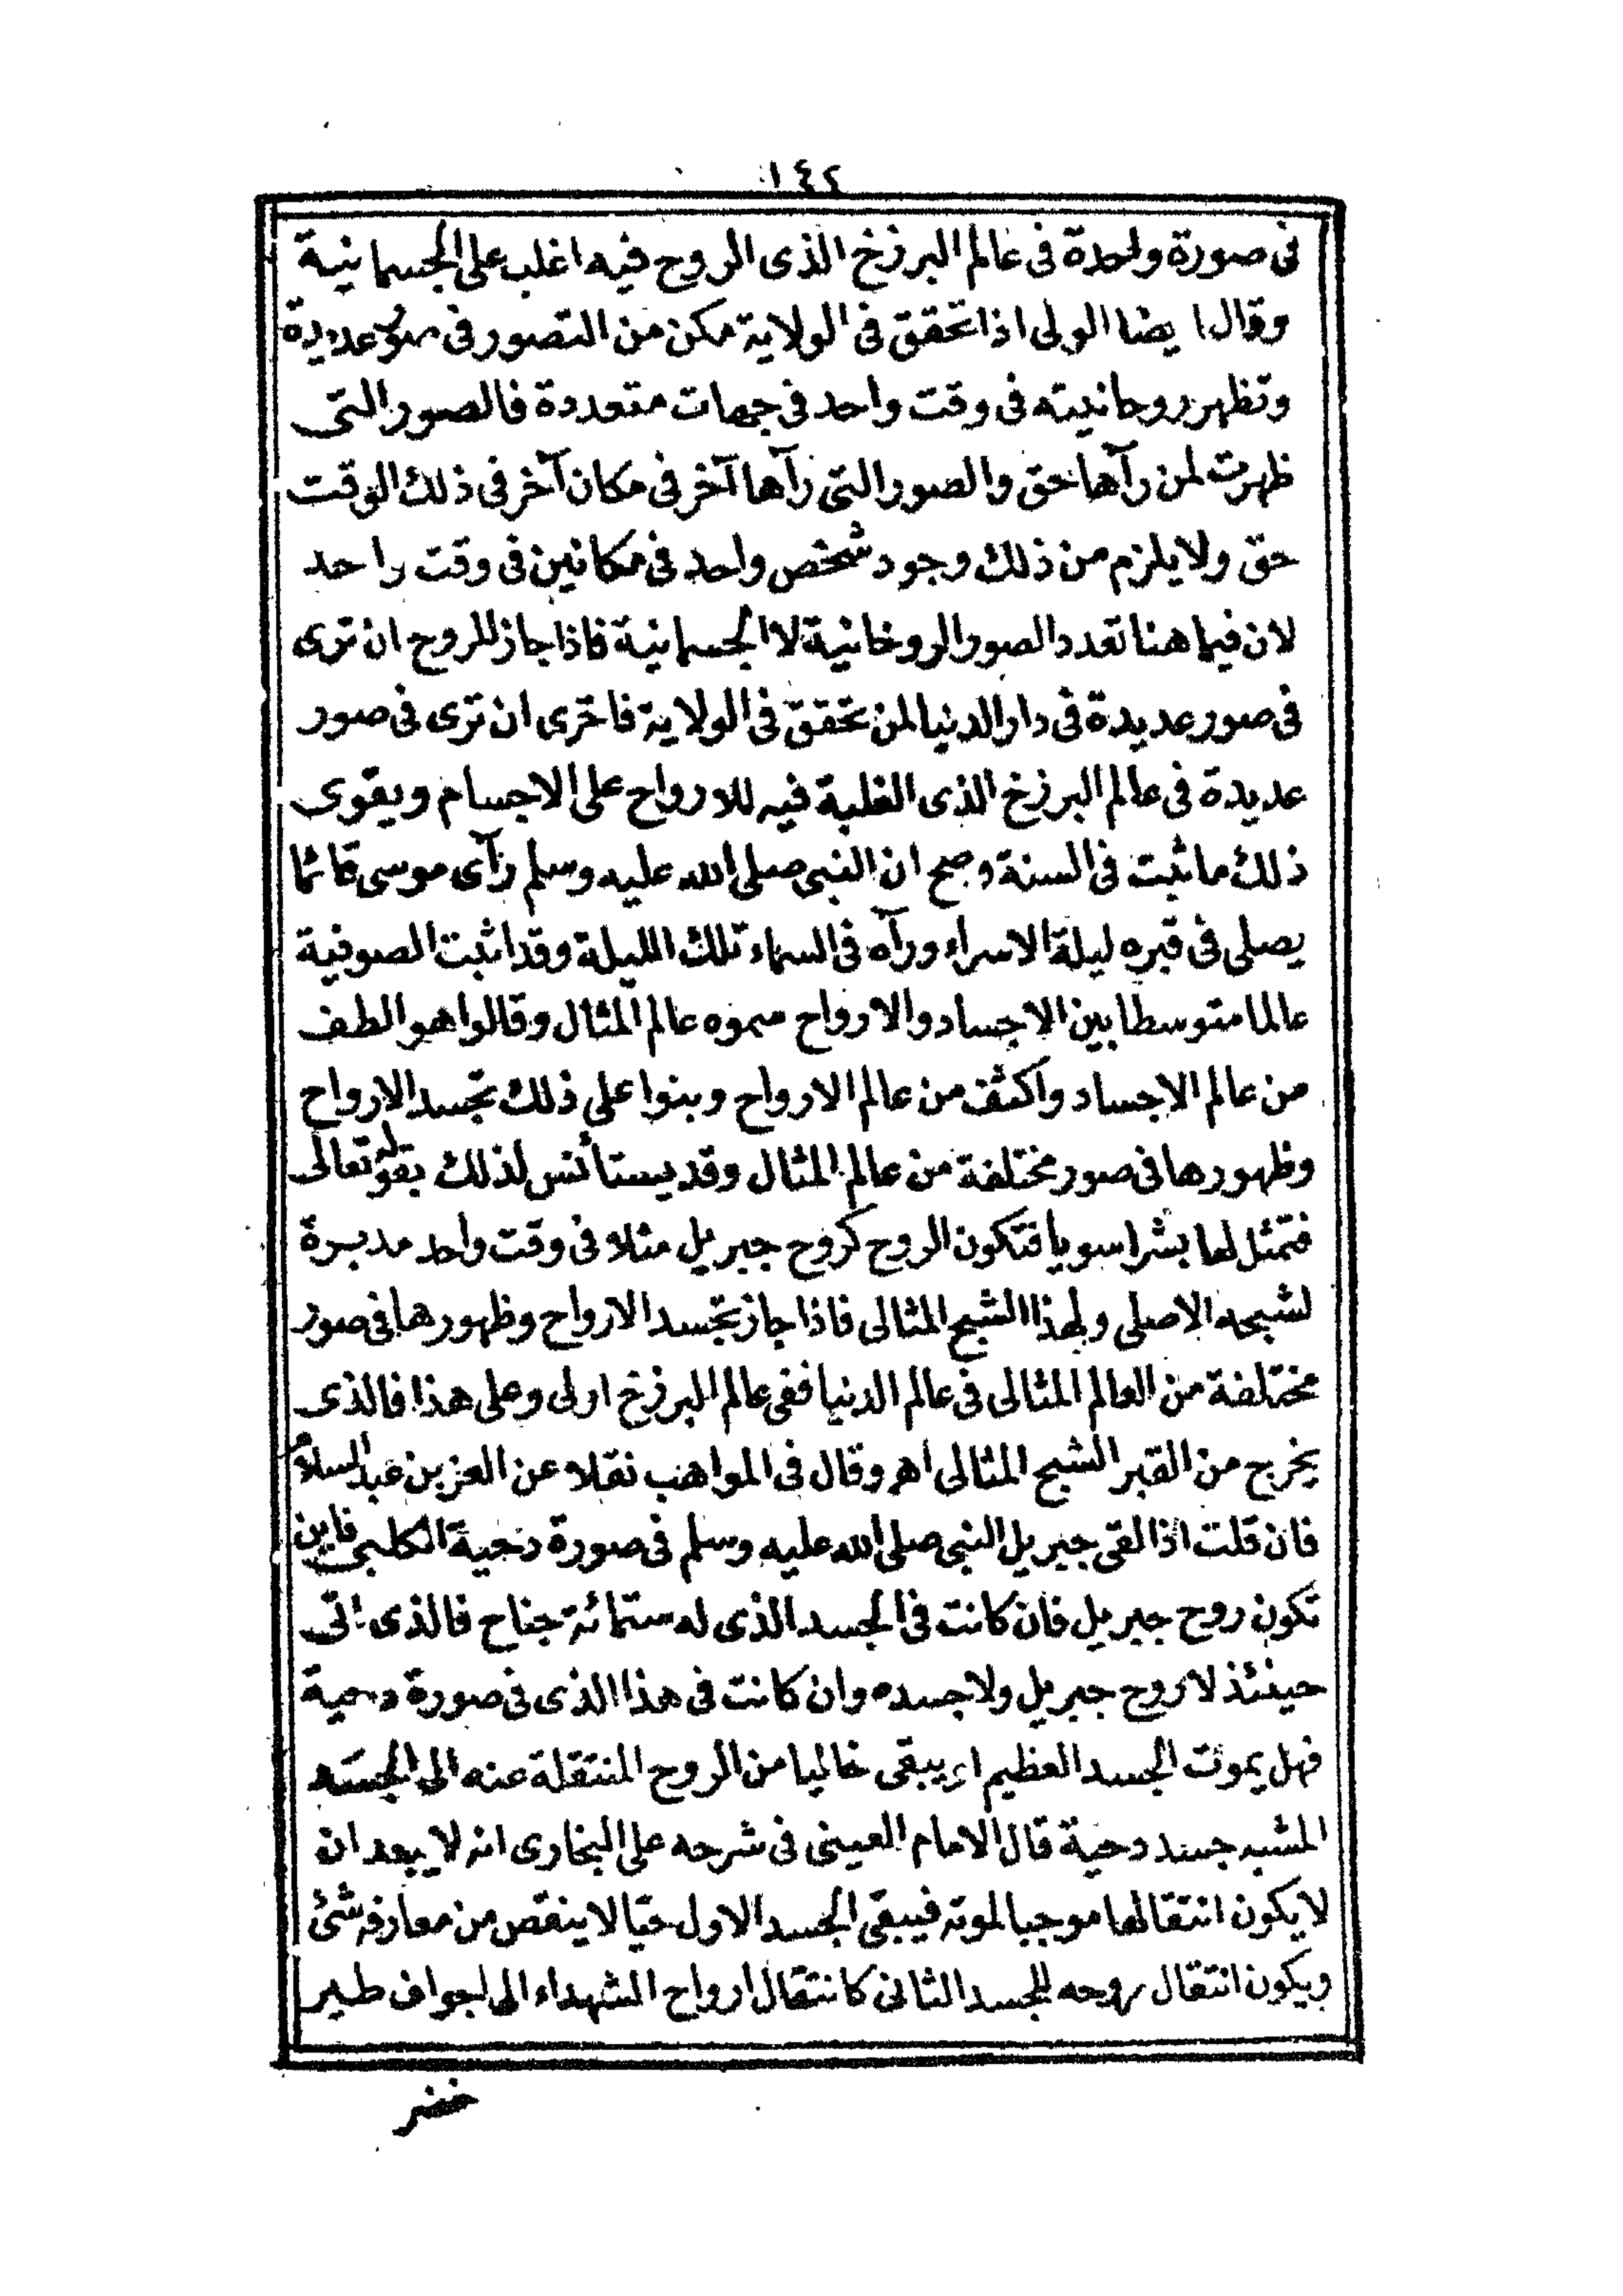 ١٤٢
فى صورة واحدة فى عالم البرزخ الذى الروح فيه اغلب على الجسمانية
وقال ايضا الولى اذا تحقق فى الولاية مكن من التصور فى صور عديدة
وتظهر روحانيته فى وقت واحد فى جهات متعددة فالصور التى
ظهرت لمن رآها حق والصور التى رآها آخر فى مكان آخر فى ذلك الوقت
حق ولا يلزم من ذلك وجود شخص واحد فى مكانين فى وقت واحد
لان فيما هنا تعدد الصور الروحانية لا الجسمانية فاذا جاز للروح ان ترى
فى صور عديدة فى دار الدنيا لمن تحقق فى الولاية فاحرى ان ترى فى صور
عديدة فى عالم البرزخ الذى الغلبة فيه للارواح على الاجسام ويقوى
ذلك ما ثبت فى السنة وصح ان النبى صلى الله عليه وسلم رآى موسى قائما
يصلى فى قبره ليلة الاسراء ورآه فى السماء تلك الليلة وقد اثبت الصوفية
عالما متوسطا بين الاجساد والارواح سموه عالم المثال وقالوا هو الطف
من عالم الاجساد واكثف من عالم الارواح وبنوا على ذلك تجسد الارواح
وظهورها فى صور مختلفة من عالم المثال وقد يستأنس لذلك بقوله تعالى
فتمثل لها بشرا سويا فتكون الروح كروح جبريل مثلا فى وقت واحد مدبرة
لشبحه الاصلى ولهذا الشبح المثالى فاذا جاز تجسد الارواح وظهورها فى صور
مختلفة من العالم المثالى فى عالم الدنيا ففى عالم البرزخ اولى وعلى هذا فالذى
يخرج من القبر الشبح المثالى اهـ وقال فى المواهب نقلا عن العز بن عبد السلام
فان قلت اذا لقى جبريل النبى صلى الله عليه وسلم فى صورة دحية الكلبى فاين
تكون روح جبريل فان كانت فى الجسد الذى له ستمائة جناح فالذى اتى
حينئذ لا روح جبريل ولا جسده وان كانت فى هذا الذى فى صورة دحية
فهل يموت الجسد العظيم او يبقى خاليا من الروح المنتقلة عنه الى الجسد
المشبه جسد دحية قال الامام العينى فى شرحه على البخارى انه لا يبعد ان
لا يكون انتقالها موجبا لموته فيبقى الجسد الاول حيا لا ينقص من معارفه شئ
ويكون انتقال روحه للجسد الثانى كانتقال ارواح الشهداء الى اجواف طير
خضر